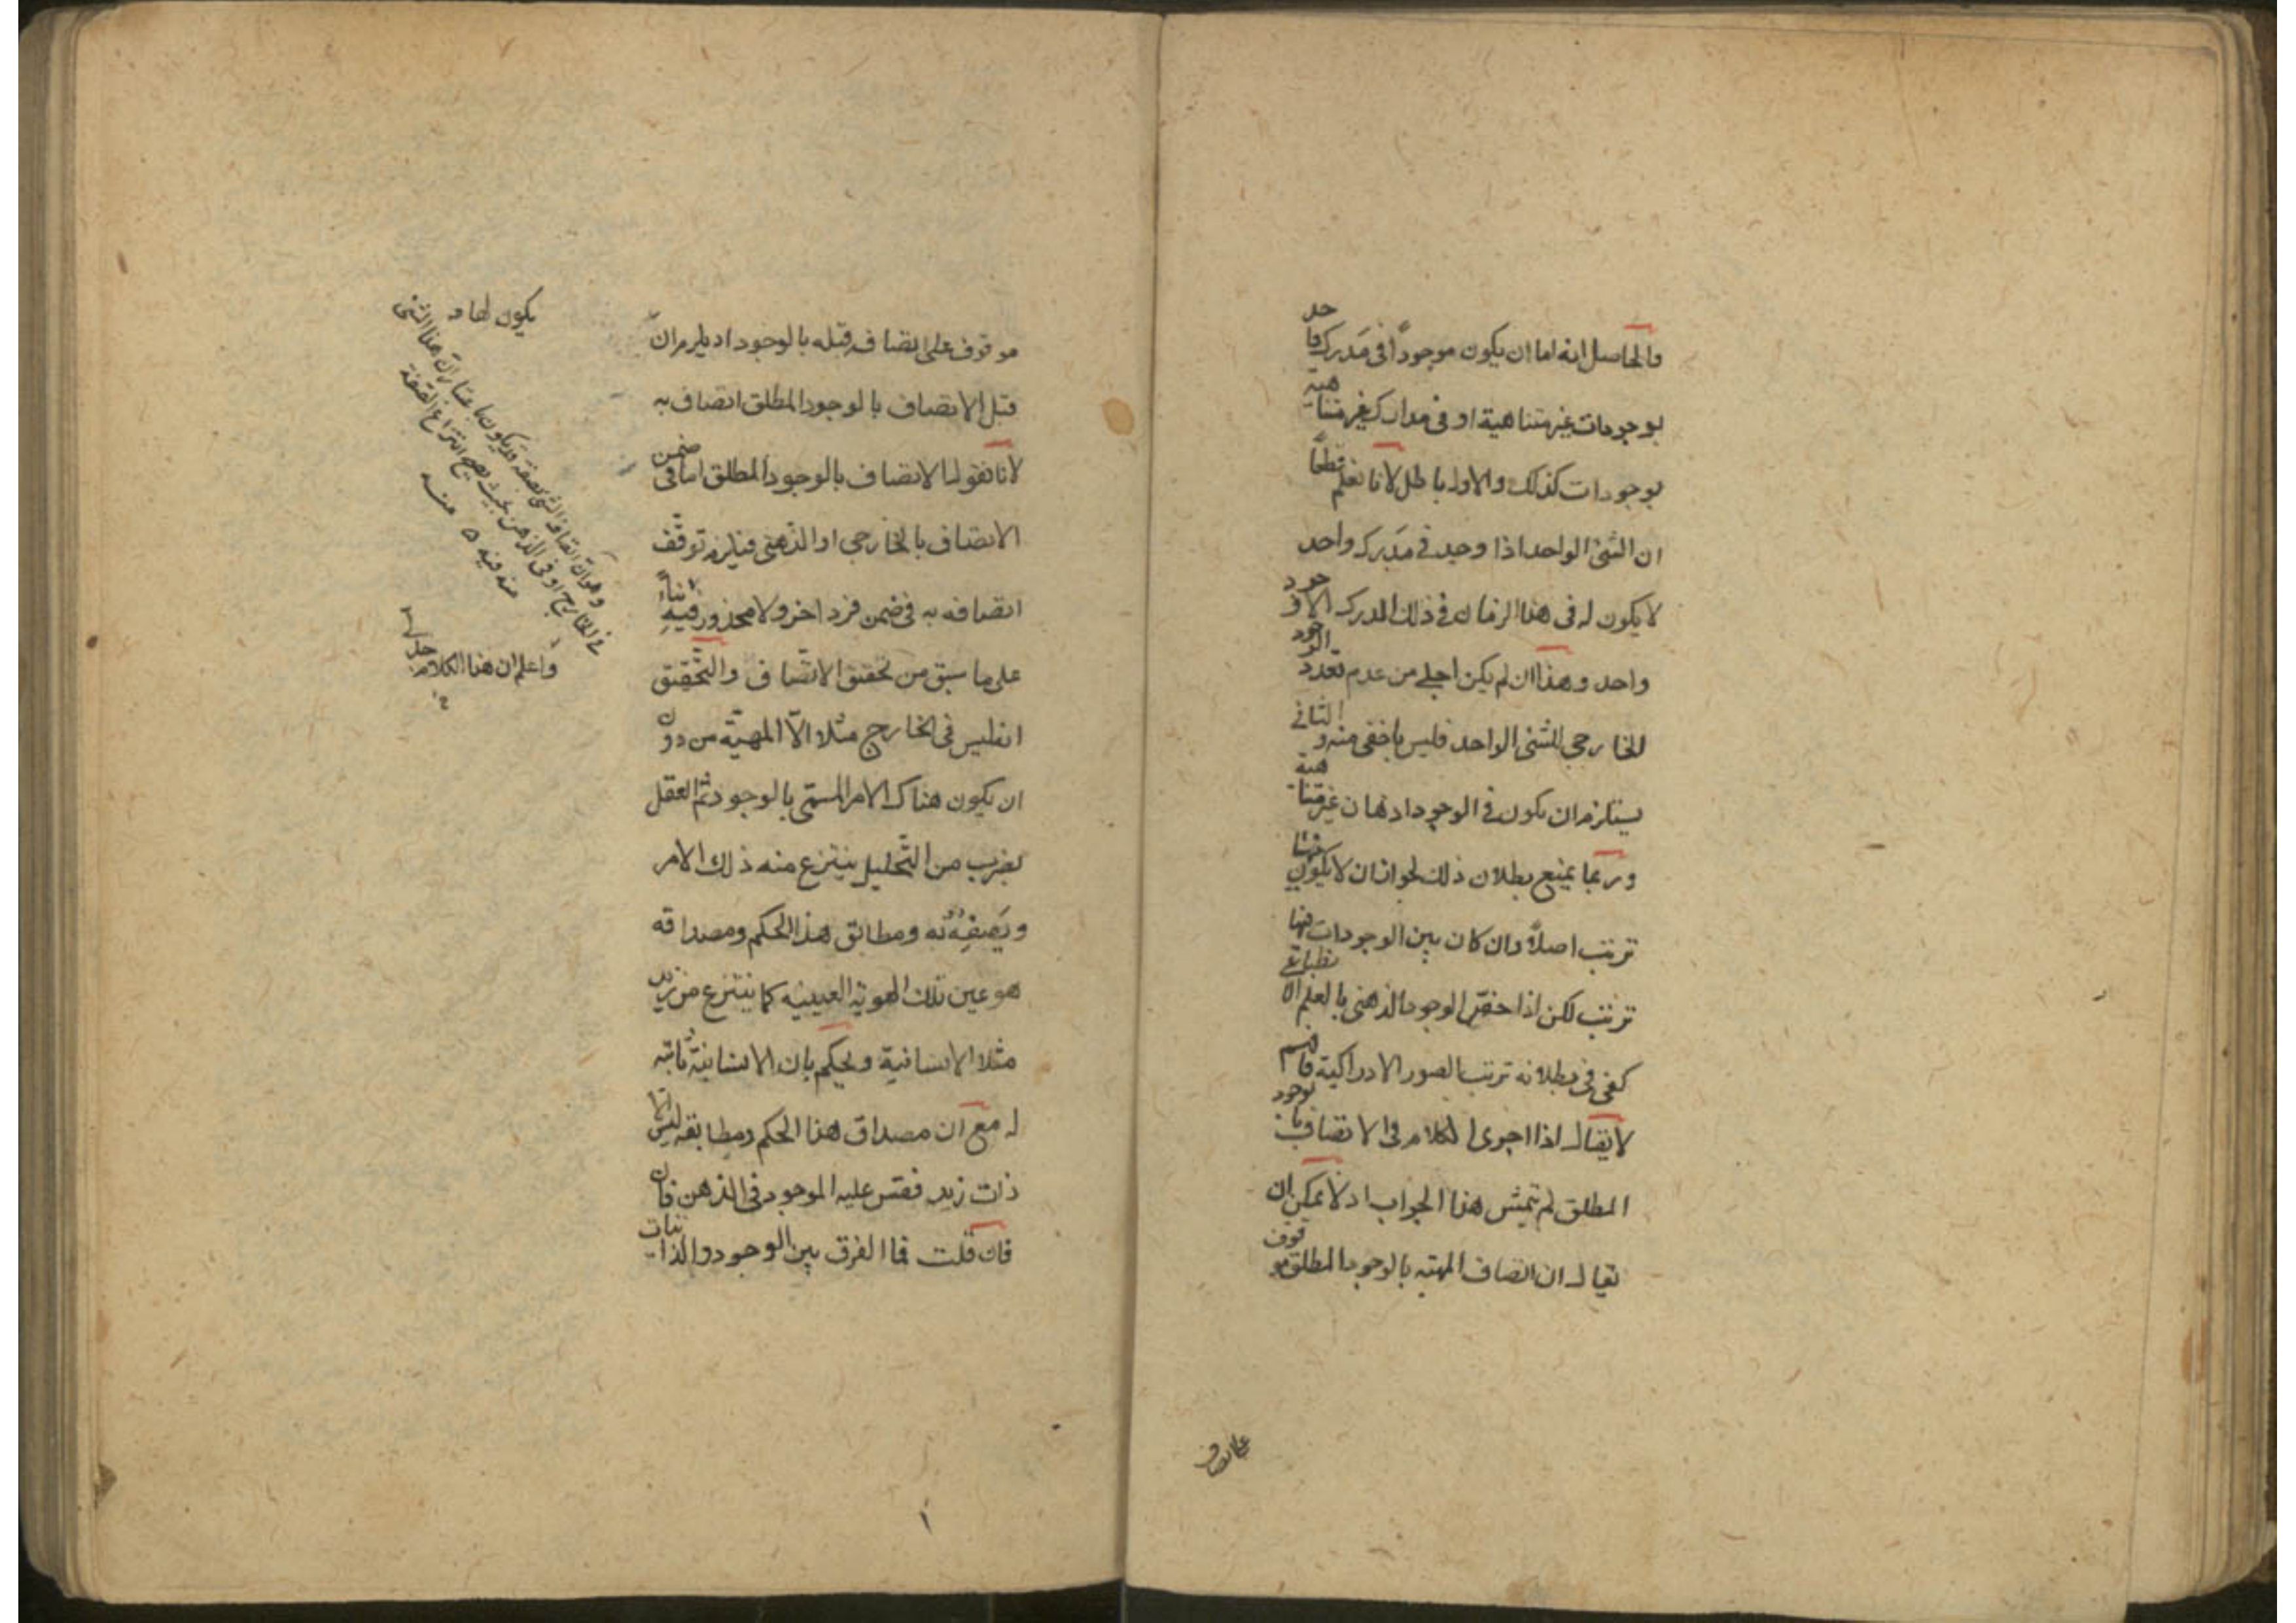 والحاصل انه اما ان يكون موجوداً فى مدرك واحد
بوجودات غير متناهية او فى مدارك غير متناهية
بوجودات كذلك والاول باطل لانا نعلم قطعاً
ان الشئ الواحد اذا وجد فى مدرك واحد
لا يكون له فى هذا الزمان فى ذلك المدرك الا وجود
واحد وهذا ان لم يكن اجلى من عدم تعدد الوجود
الخارجى للشئ الواحد فليس باخفى منه والثانى
يستلزم ان يكون فى الوجود اذهان غير متناهية
وربما يمنع بطلان ذلك لجواز ان لا يكون بينها
ترتب اصلاً وان كان بين الوجودات فيها
ترتب لكن اذا خص الوجود الذهنى بالعلم الانطباعى
كفى فى بطلانه ترتب الصور الادراكية فافهم
لا يقال اذا اجرى الكلام فى الاتصاف بالوجود
المطلق لم يتمش هذا الجواب اذ لا يمكن ان
يقال ان اتصاف المهية بالوجود المطلق موقوف
على اتصاف
موقوف على اتصاف قبله بالوجود اذ يلزم ان
قبل الاتصاف بالوجود المطلق اتصاف به
لانا نقول الاتصاف بالوجود المطلق اما فى ضمن
الاتصاف بالخارجى او الذهنى فيلزم توقف
اتصافه به فى ضمن فرد اخر ولا محذور فيه بناءً
على ما سبق من تحقيق الاتصاف والتحقيق
انه ليس فى الخارج مثلا الا المهية من دون
ان يكون هناك الامر المسمى بالوجود ثم العقل
بضرب من التحليل ينتزع منه ذلك الامر
ويصفه به ومطابق هذا الحكم ومصداقه
هو عين تلك الهوية العينية كما ينتزع من زيد
مثلا الانسانية ويحكم بان الانسانية ثابتة
له مع ان مصداق هذا الحكم ومطابقه ليس الا
ذات زيد فقس عليه الموجود فى الذهن فان
فان قلت فما الفرق بين الوجود والذاتيات
يكون لها
وهو ان اتصاف الشئ بصفة قد يكون باعتبار ان هذا الشئ
فى الخارج او فى الذهن بحيث يصح انتزاع الصفة
منه فيه ٥ منه
واعلم ان هذا الكلام